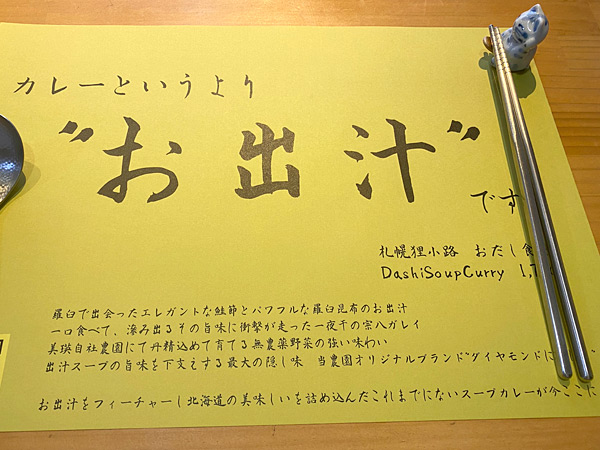 カレーというより
"お出汁"
です
札幌狸小路 おだし食
DashiSoupCurry 1,
羅臼で出会ったエレガントな鮭節とパワフルな羅臼昆布のお出汁
一口食べて、滲み出るその旨味に衝撃が走った一夜干の宗八ガレイ
美瑛自社農園にて丹精込めて育てる無農薬野菜の強い味わい
出汁スープの旨味を下支えする最大の隠し味 当農園オリジナルブランド"ダイヤモンドに
お出汁をフィーチャーし北海道の美味しいを詰め込んだこれまでにないスープカレーが今ここに